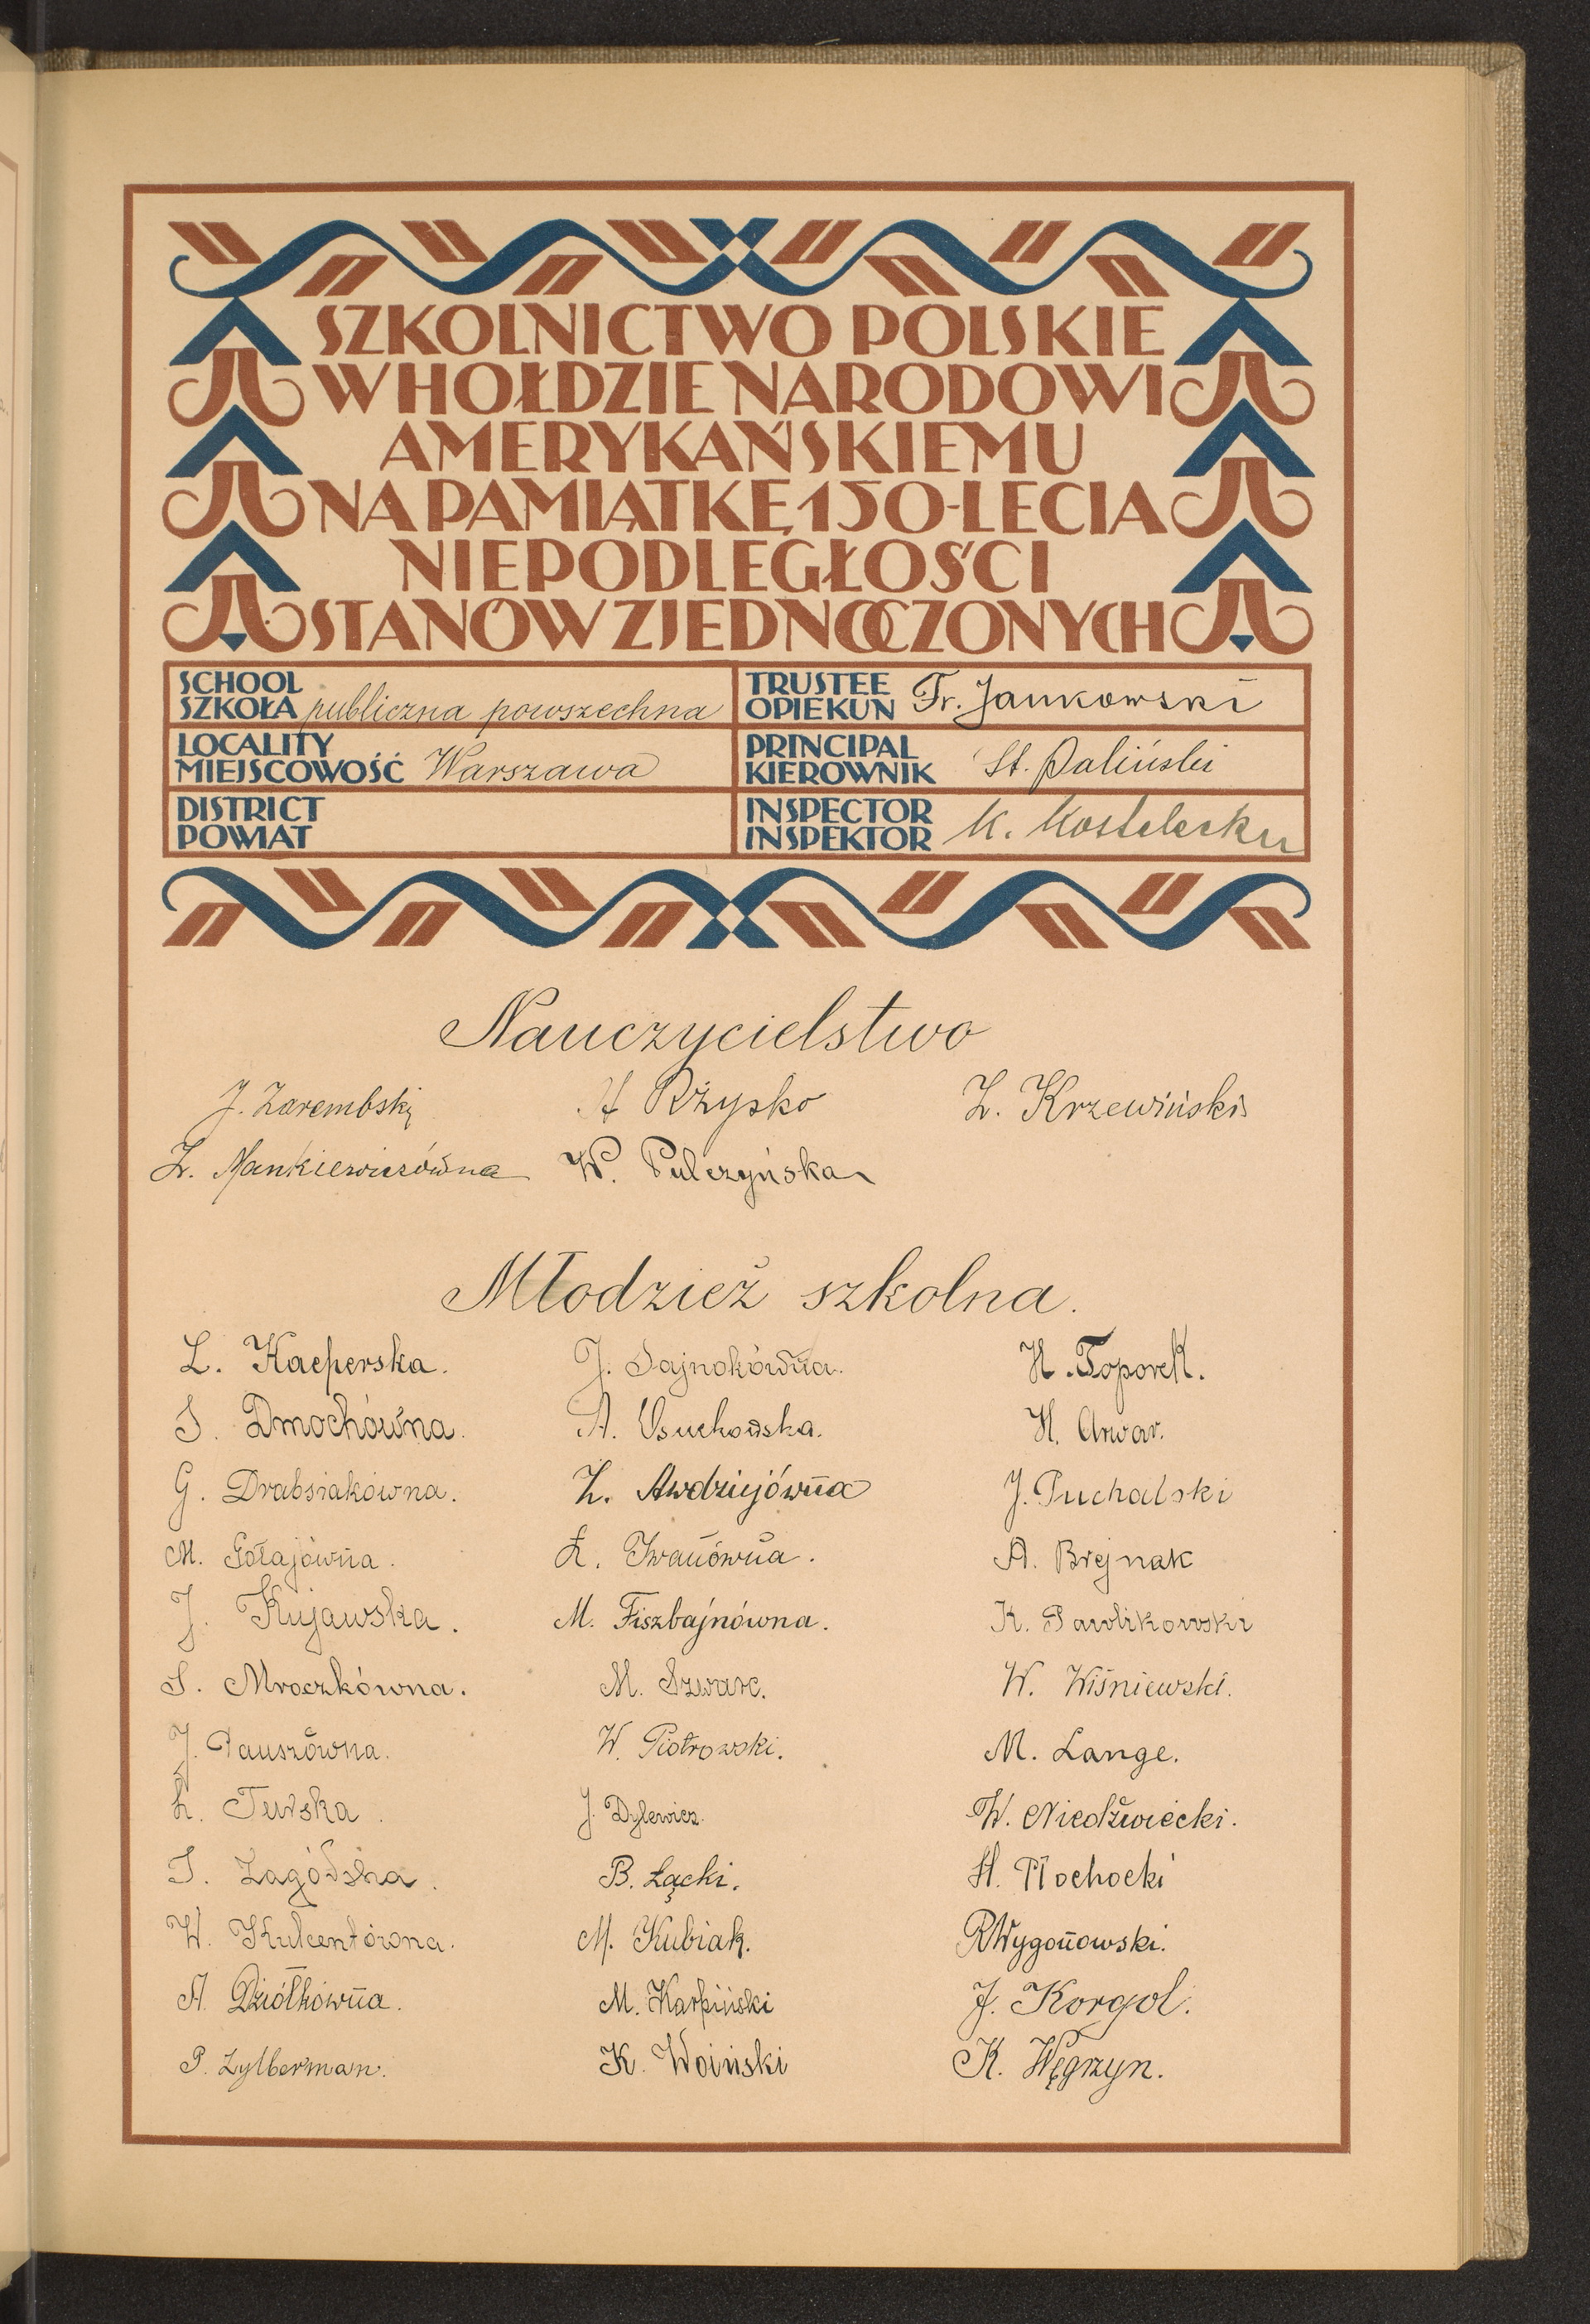 SZKOLNICTWO POLSKIE
W HOŁDZIE NARODOWI
AMERYKAŃSKIEMU
NA PAMIĄTKĘ 150-LECIA
NIEPODLEGŁOŚCI
STANÓW ZJEDNOCZONYCH
SCHOOL
SZKOŁA publiczna powszechna
TRUSTEE
OPIEKUN Fr. Jankowski
LOCALITY
MIEJSCOWOŚĆ Warszawa
PRINCIPAL
KIEROWNIK St. Paliński
DISTRICT
POWIAT
INSPECTOR
INSPEKTOR K. Kostelecku
Nauczycielstwo
J. Zarembski H Rżysko Z. Krzewiński
Z. Mankiewiczówna W. Pulczyńska
Młodzież szkolna.
L. Kacperska. J. Sajnokówna. H. Toporek.
S. Dmochówna. A. Osuchowska. H. Arwar.
G. Drabsiakówna. Z. Awdziejówna J. Puchalski
M. Gołajówna. Ł. Iwanówna. A. Brejnak
J. Kujawska. M. Fiszbajnówna. K. Pawlikowski
S. Mroczkówna. M. Szwarc. W. Wiśniewski.
J. Pauszówna. W. Piotrowski. M. Lange.
L. Turska. J. Dylewicz. W. Niedźwiecki.
I. Zagórska. B. Łącki. H. Płochocki
W. Kulcentówna. M. Kubiak. R Wygonowski.
A. Dziółkówna. M. Karpiński J. Korgol.
P. Zylberman. K. Woiński K. Węgrzyn.